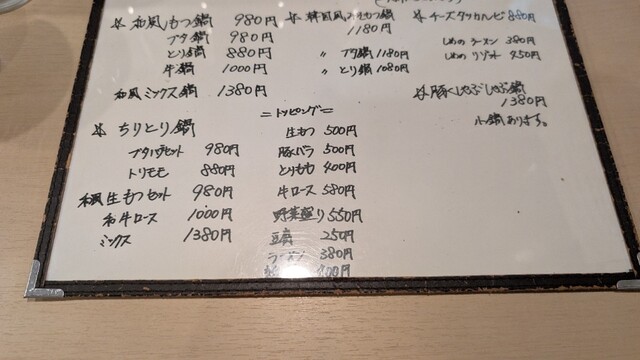 ※和風もつ鍋 980円
ブタ鍋 980円
とり鍋 880円
牛鍋 1000円
和風ミックス鍋 1380円
※ちりとり鍋
ブタバラセット 980円
トリモモ 880円
和風生もつセット 980円
和牛ロース 1000円
ミックス 1380円
※韓国風もつ鍋
1180円
〃 ブタ鍋 1180円
〃 とり鍋 1080円
=トッピング=
生もつ 500円
豚バラ 500円
とりもも 400円
牛ロース 580円
野菜盛り 550円
豆腐 250円
ラーメン 380円
300円
※チーズタッカルビ 880円
しめのラーメン 380円
しめのリゾット 450円
※豚しゃぶしゃぶ鍋
1380円
小鍋あります。